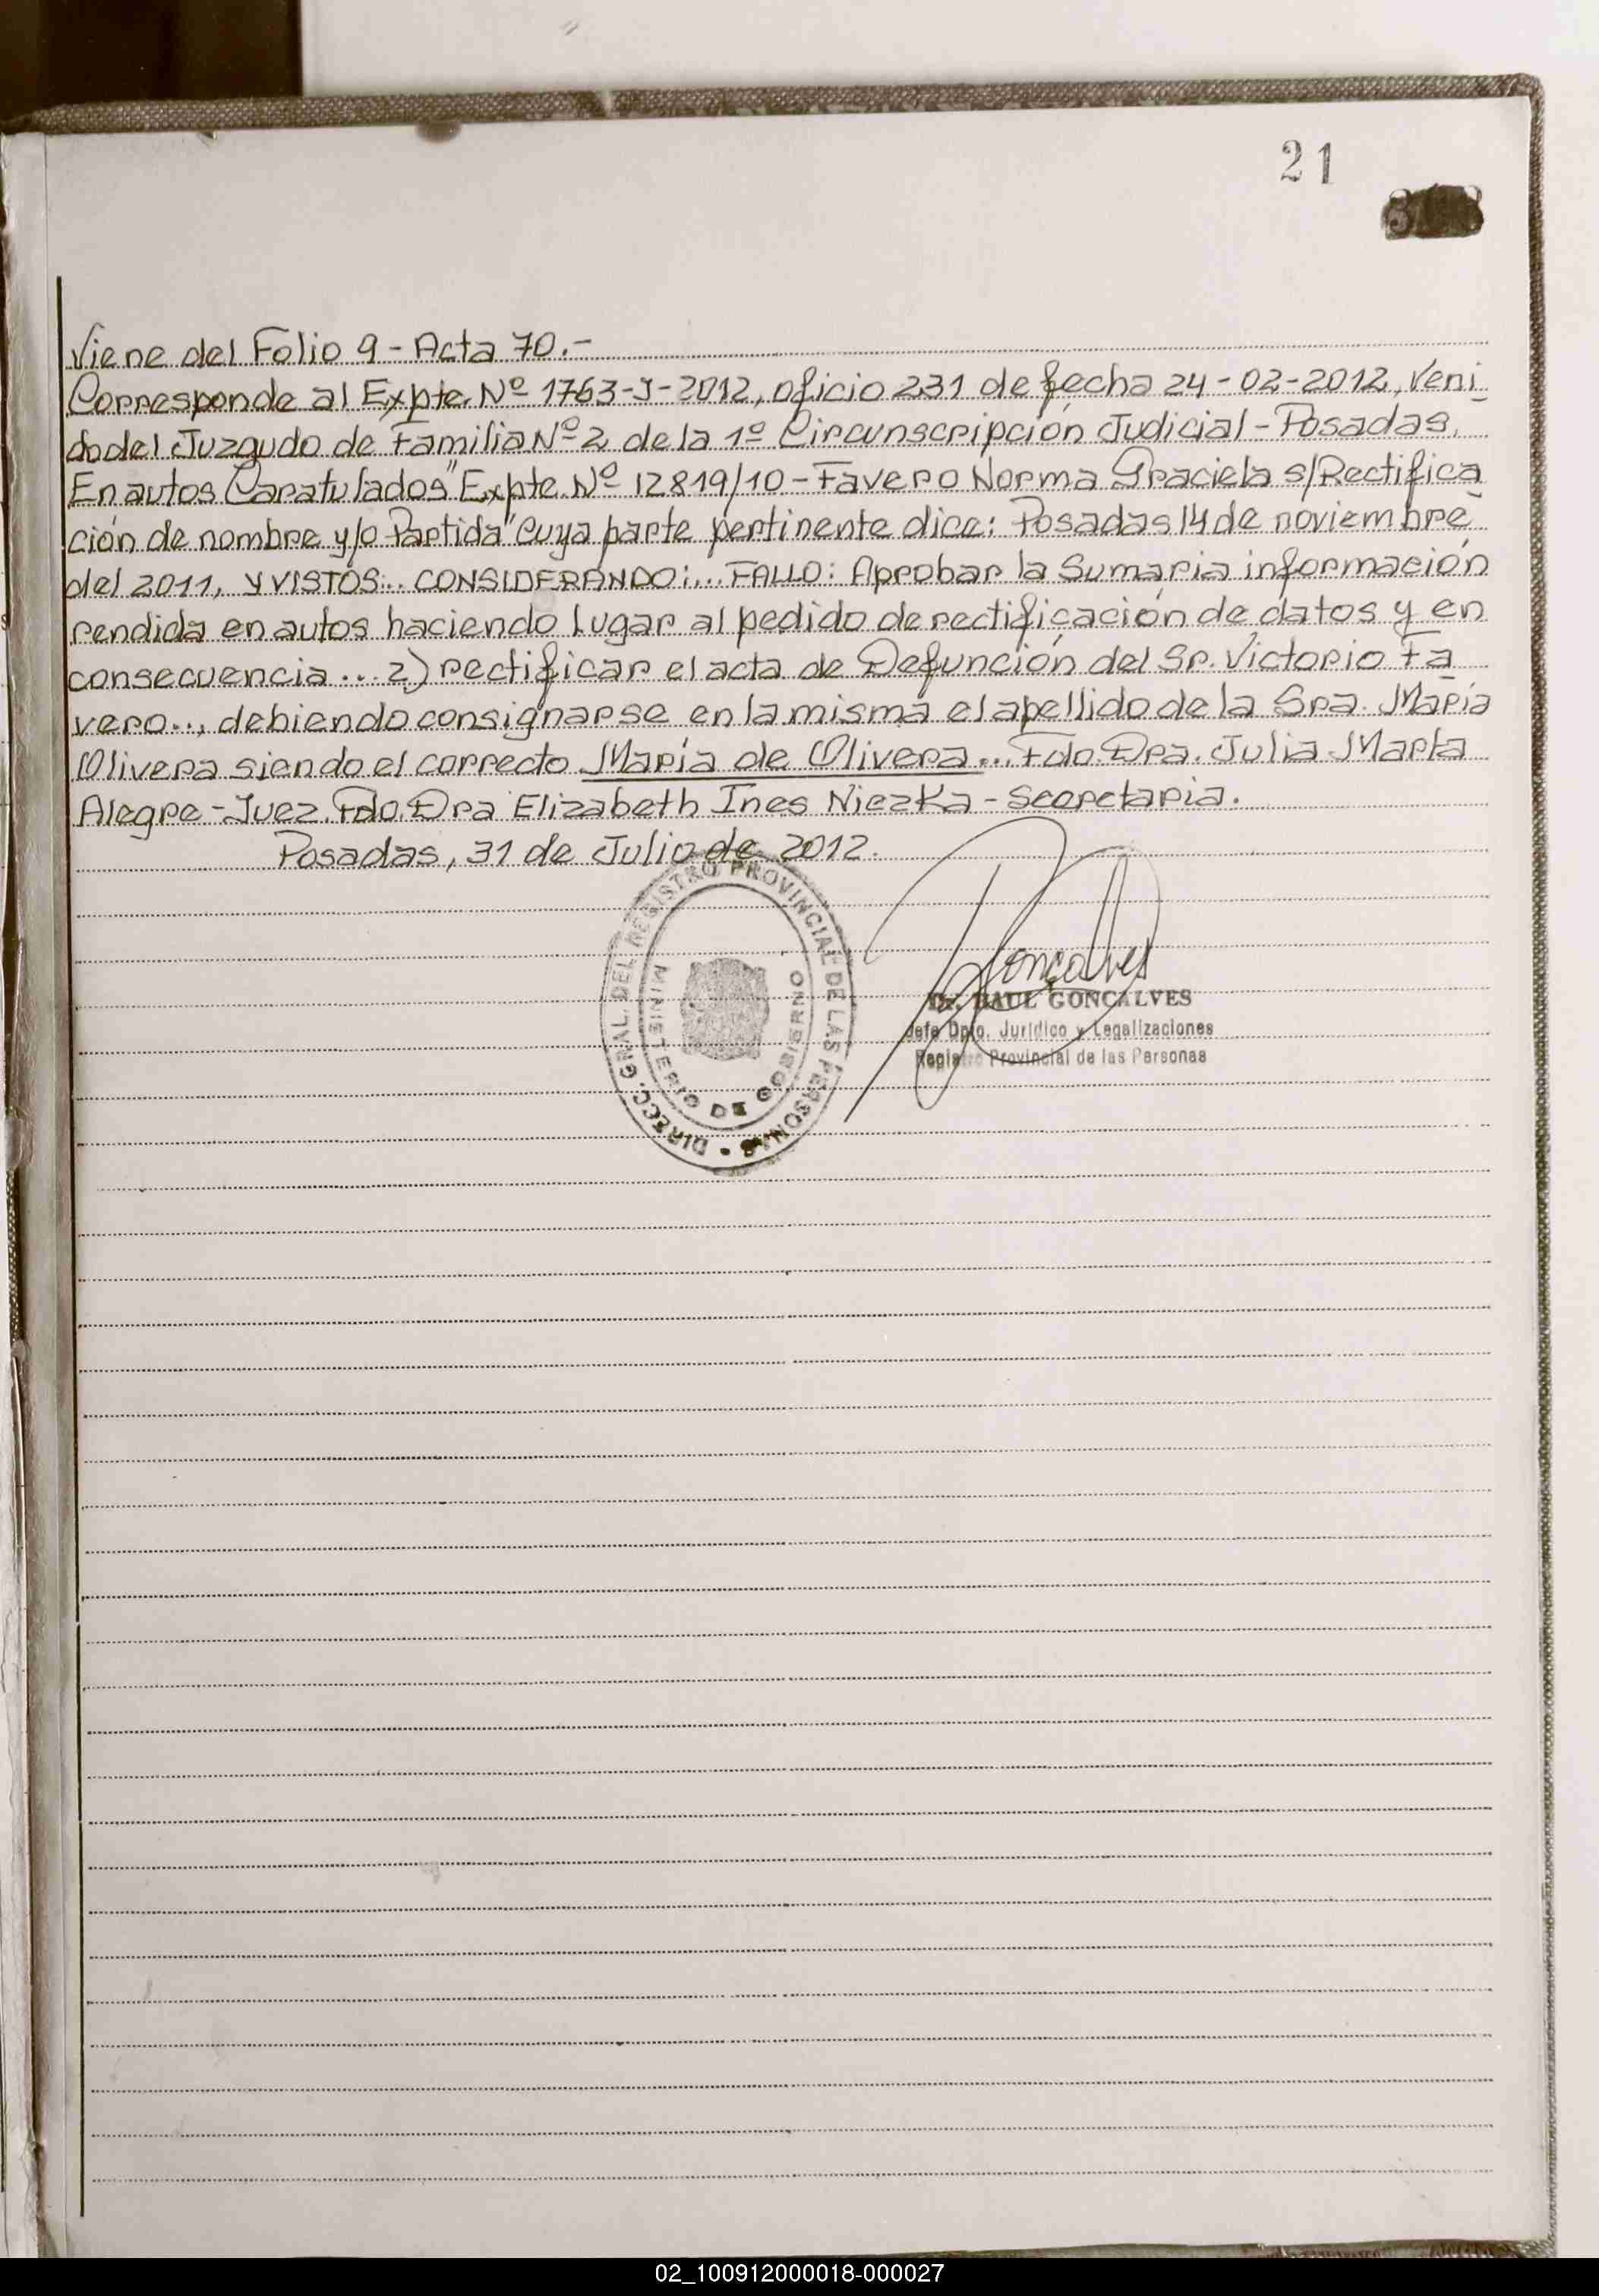 21
Viene del Folio 9 - Acta 70.-
Corresponde al Expte. Nº 1763-J-2012, oficio 231 de fecha 24-02-2012, Veni-
do del Juzgudo de Familia Nº 2 de la 1º Circunscripción Judicial - Posadas.
En autos Caratulados "Expte. Nº 12819/10 - Favero Norma Graciela s/Rectifica-
ción de nombre y/o Partida" cuya parte pertinente dice: Posadas 14 de noviembre
del 2011, Y VISTOS... CONSIDERANDO:... FALLO: Aprobar la Sumaria información
rendida en autos haciendo lugar al pedido de rectificación de datos y en
consecuencia... 2) rectificar el acta de Defunción del Sr. Victorio Fa-
vero..., debiendo consignarse en la misma el apellido de la Sra. María
Olivera siendo el correcto María de Olivera... Fdo. Dra. Julia Marta
Alegre - Juez. Fdo. Dra Elizabeth Ines Niezka - Secretaria.
Posadas, 31 de Julio de 2012.
DIRECC. GRAL. DEL REGISTRO PROVINCIAL DE LAS PERSONAS
MINISTERIO DE GOBIERNO
Goncalves
Dr. RAUL GONCALVES
Jefe Dpto. Jurídico y Legalizaciones
Registro Provincial de las Personas
02_100912000018-000027